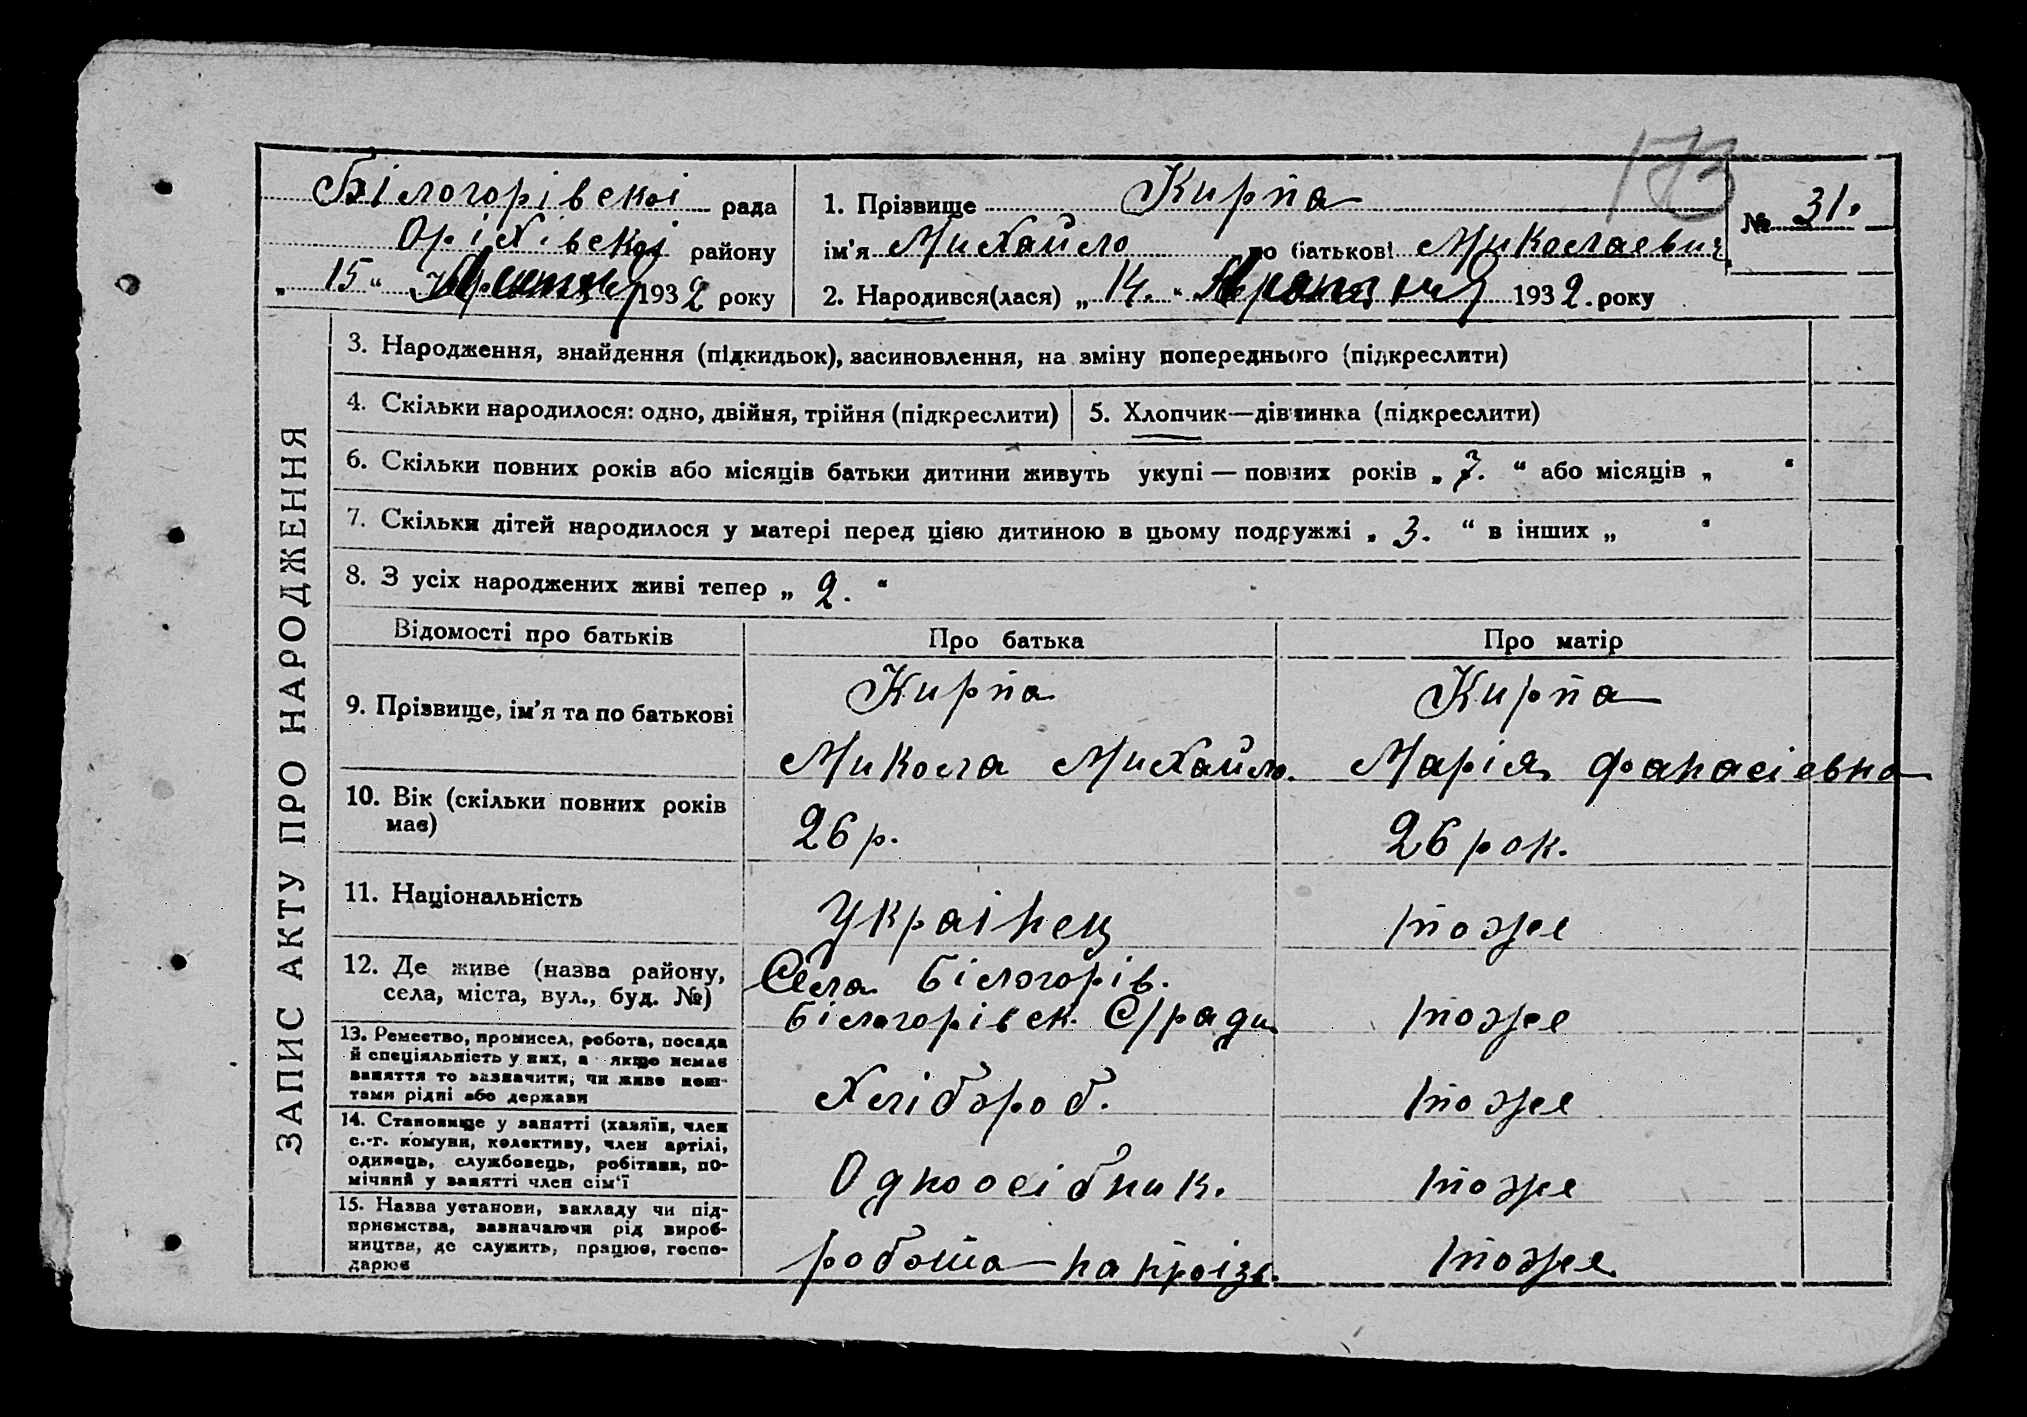 173
Білогорівскоі рада
Оріхівскоі району
„ 15 “ 1932 року
1. Прізвище Кирпа
ім’я Михайло по батькові Миколаевич
2. Народився(лася) „ 14. “ 1932. року
№ 31.
ЗАПИС АКТУ ПРО НАРОДЖЕННЯ
3. Народження, знайдення (підкидьок), засиновлення, на зміну попереднього (підкреслити)
4. Скільки народилося: одно, двійня, трійня (підкреслити)
5. Хлопчик—дівчинка (підкреслити)
6. Скільки повних років або місяців батьки дитини живуть укупі — повних років „ 7. “ або місяців „ “
7. Скільки дітей народилося у матері перед цією дитиною в цьому подружжі „ 3. “ в інших „ “
8. З усіх народжених живі тепер „ 2. “
Відомості про батьків
Про батька
Про матір
9. Прізвище, ім’я та по батькові
Кирпа
Микола Михайло.
Кирпа
Марія Фанасіевна
10. Вік (скільки повних років
має)
26 р.
26 рок.
11. Національність
Украінец
тоже
12. Де живе (назва району,
села, міста, вул., буд. №)
Села Білогорів.
Білогорівск. С/ради
тоже
13. Ремество, промисел, робота, посада
й спеціяльність у них, а якщо немає
заняття то зазначити, чи живе кош-
тами рідні або держави
Хлібороб.
тоже
14. Становище у занятті (хазяїн, член
с.-г. комуни, колективу, член артілі,
одинець, службовець, робітник, по-
мічний у занятті член сім’ї
Одноосібник.
тоже
15. Назва установи, закладу чи під-
приємства, зазначаючи рід вироб-
ництва, де служить, працює, госпо-
дарює
робота на проізв.
тоже